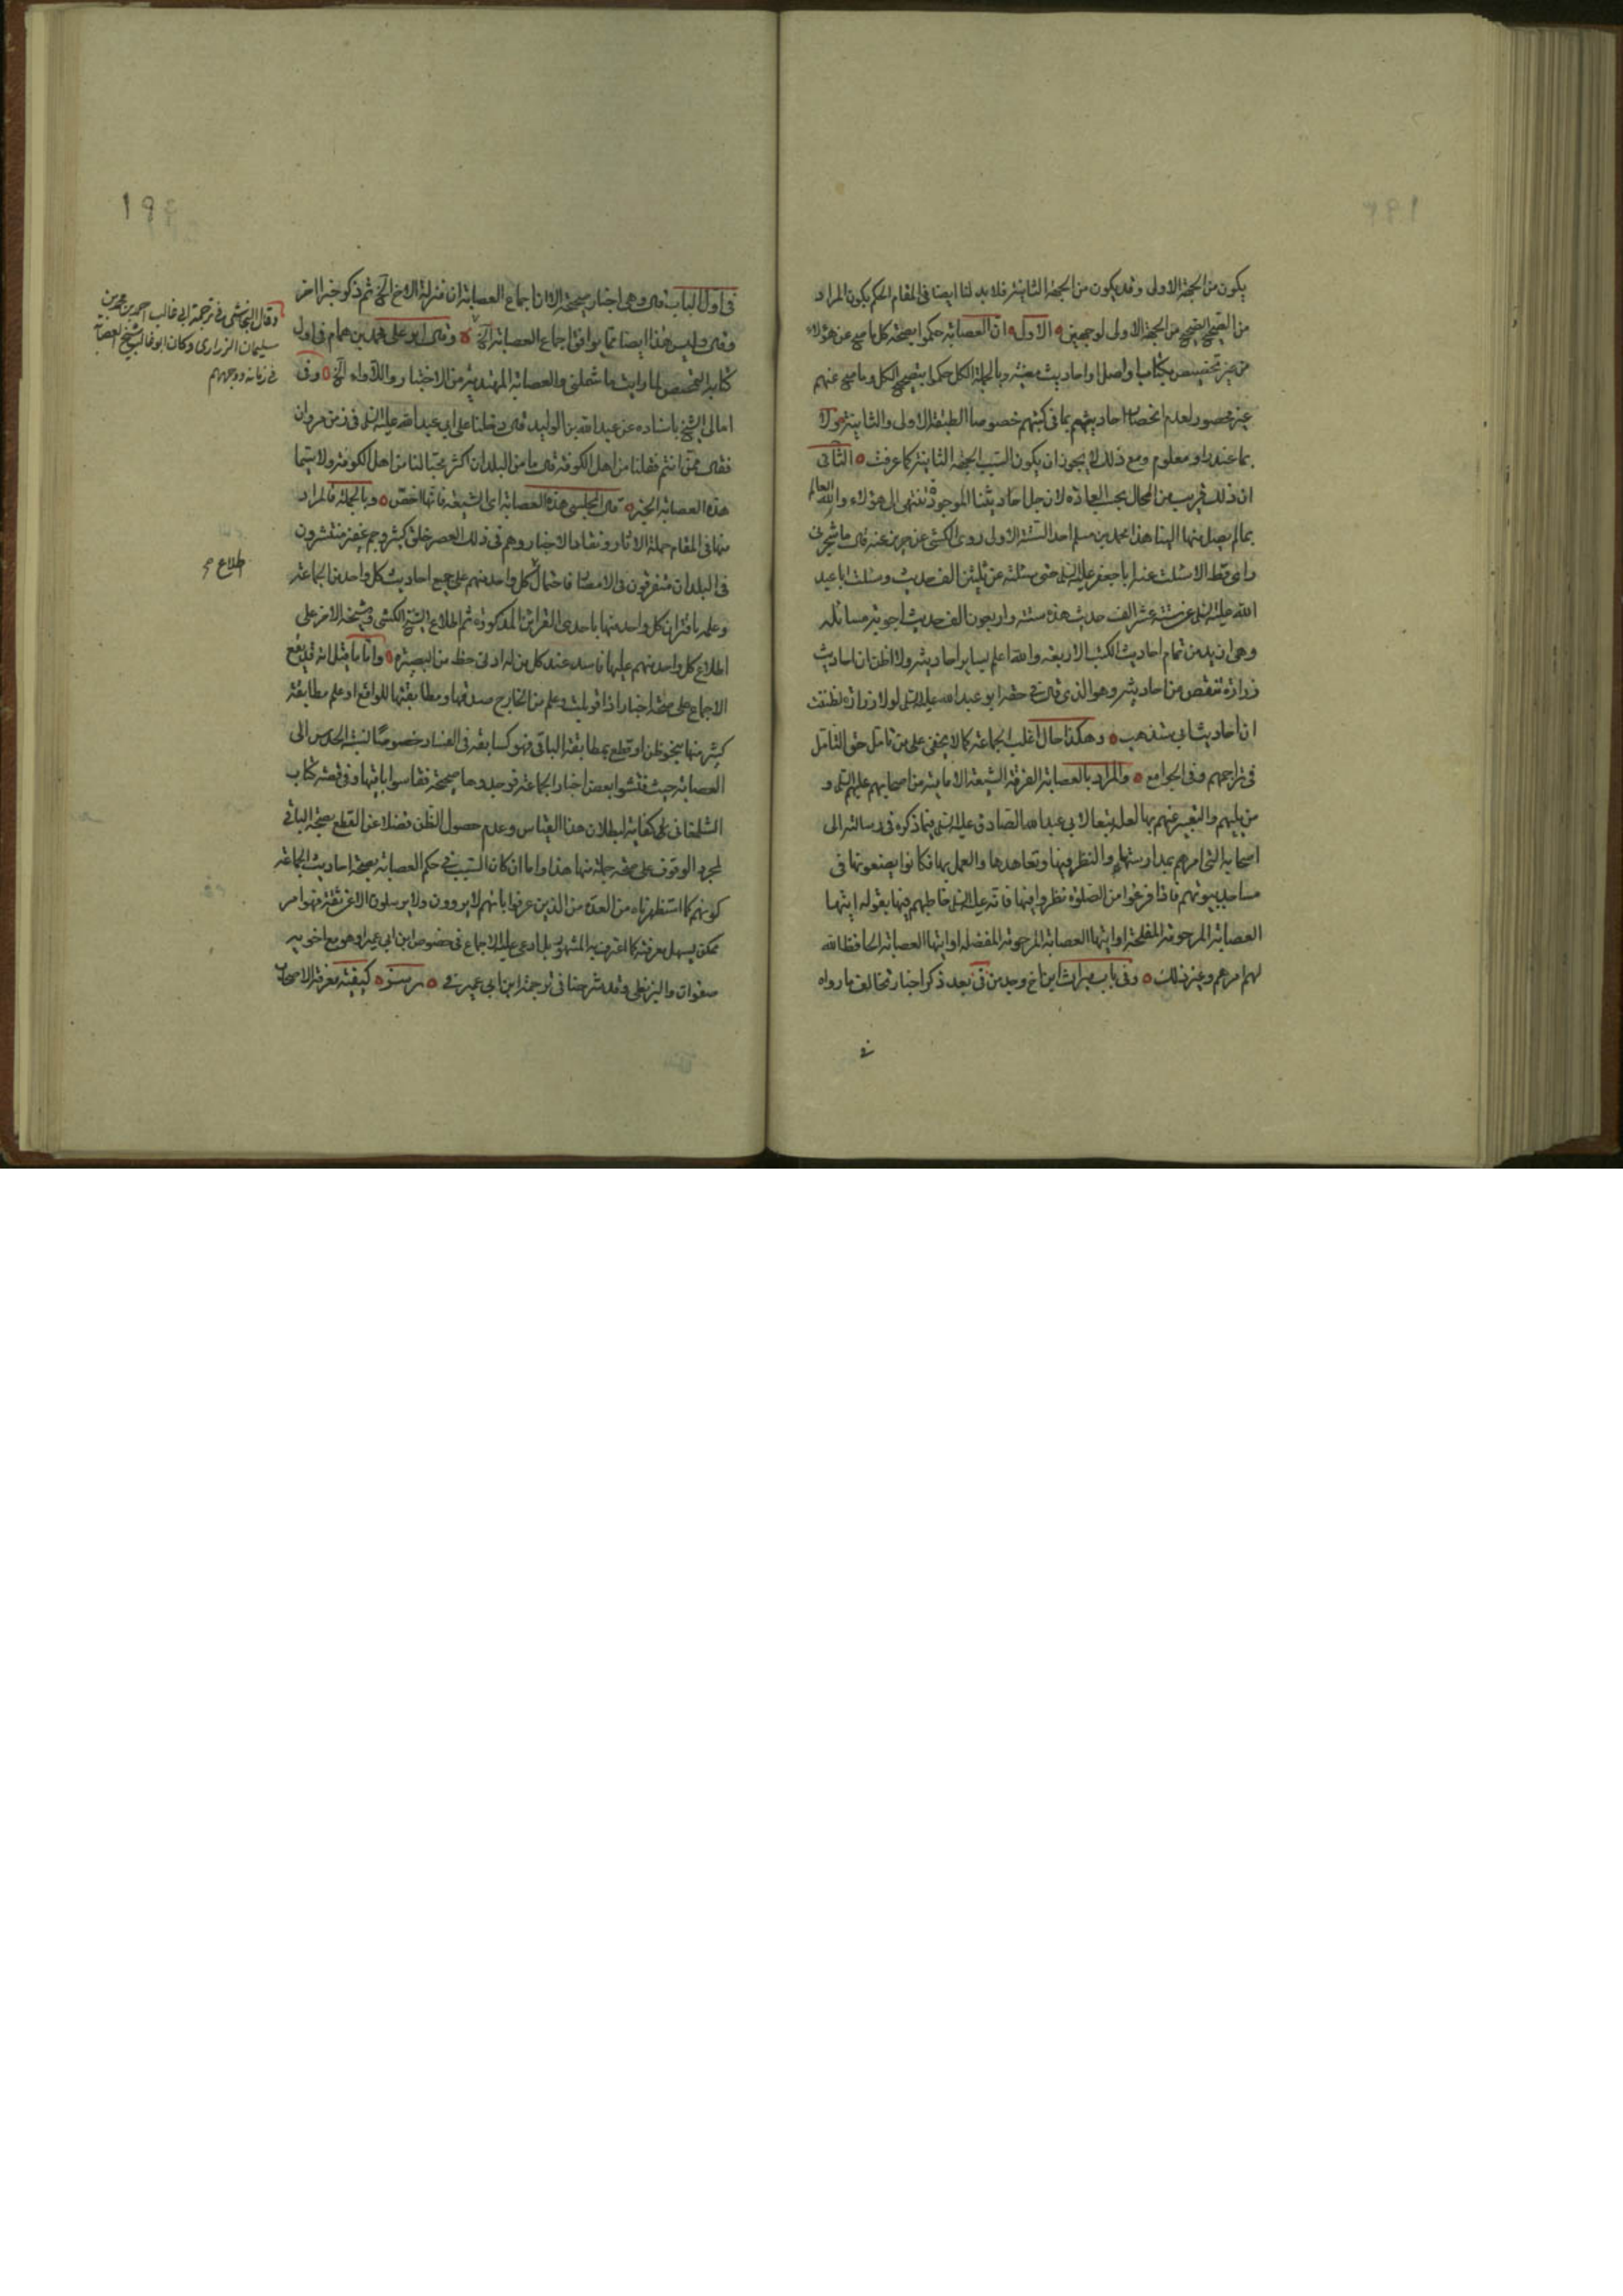 يكون من الجهة الاولى وقد يكون من الجهة الثانية فلابد لنا ايضا فى المقام الحكم بكون المراد
من الصحيح الصحيح من الجهة الاولى لوجهين الاول ان العصابة حكموا بصحة كل ما صح عن هؤلاء
من غير تخصيص بكتاب او اصل او احاديث معينه وبالجملة الكل حكموا بتصحيح الكل وما صح عنهم
غير محصور لعدم انحصار احاديثهم بما فى كتبهم خصوصا الطبقة الاولى والثانية ولا
بما عندنا ومعلوم ومع ذلك لا يجوز ان يكون السبب الجهة الثانية كما عرفت الثانى
ان ذلك قريب من المحال بحسب العاده لان جل احاديثنا الموجودة تنتهى الى هؤلاء والله العالم
بما لم يصل منها الينا هذا محمد بن مسلم احد الستة الاولى روى الكشى عن حريز عنه قال ما شجرنى
راى قط الا سئلت عنه ابا جعفر عليه السلام حتى سئلته عن ثلثين الف حديث وسئلت ابا عبد
الله عليه السلام عن ستة عشر الف حديث هذه ستة واربعون الف حديث اجوبة مسائله
وهى ازيد من تمام احاديث الكتب الاربعه والله اعلم بساير احاديثه ولا اظن ان احاديث
زرارة تنقص من احاديثه وهو الذى قال فى حقه ابو عبد الله عليه السلام لولا زرارة لظننت
ان احاديث ابى ستذهب وهكذا حال اغلب الجماعة كما لا يخفى على من تامل حق التامل
فى تراجمهم وفى الجوامع والمراد بالعصابة الفرقة الشيعة الامامية من اصحابهم عليهم السلام و
من يليهم والتعبير عنهم بها لعله تبعا لابى عبد الله الصادق عليه السلام فيما ذكره فى رسالته الى
اصحابه التى امرهم بمدارستها والنظر فيها وتعاهدها والعمل بها فكانوا يضعونها فى
مساجد بيوتهم فاذا فرغوا من الصلوة نظروا فيها فانه عليه السلام خاطبهم فيها بقوله ايتها
العصابة المرحومة المفلحة او ايتها العصابة المرحومة المفضله او ايتها العصابة الحافظ الله
لهم امرهم وغير ذلك وفى باب ميراث ابن اخ وجد من فى بعد ذكر اخبار تخالف ما رواه
فى
١٩٤
فى اول الباب قال وهى اخبار صحيحة الا ان اجماع العصابة ان منزلة الاخ الخ ثم ذكر خبرا اخر
وقال وليس هذا ايضا مما يوافق اجماع العصابة الخ وقال ابو على محمد بن همام فى اول
كتابه التمحيص لما رايت ما شملنى والعصابة المهتدية من الاختبار واللأواء الخ وفى
امالى الشيخ باسناده عن عبد الله بن الوليد قال دخلنا على ابى عبد الله عليه السلام فى زمن مروان
فقال ممن انتم فقلنا من اهل الكوفة قال ما من البلدان اكثر محبا لنا من اهل الكوفة ولا سيما
هذه العصابة الخبر قال المجلسى هذه العصابة اى الشيعة فانها اخص وبالجملة فالمراد
منها فى المقام حملة الاثار ونقاد الاخبار وهم فى ذلك العصر خلق كثير وجم غفير منتشرون
فى البلدان متفرقون فى الامصار فاحتمال كل واحد منهم على جميع احاديث كل واحد من الجماعة
وعلمه باقتران كل واحد منها باحدى القرائن المذكورة ثم اطلاع الشيخ الكشى او شيخه الاخر على
اطلاع كل واحد منهم عليها فاسد عند كل من له ادنى حظ من البصيرة واما ما قيل انه قد يقع
الاجماع على صحة اخبار اذا قوبلت وعلم من الخارج صدقها ومطابقتها للواقع او علم مطابقة
كثير منها بنحو ظن او قطع بمطابقة الباقى فهو كسابقه فى الفساد خصوصا نسبة الحدس الى
العصابة حيث فتشوا بعض اخبار الجماعة فوجدوها صحيحة فقاسوا باقيها وفى قصة كتاب
الشلمغانى كفاية لبطلان هذا القياس وعدم حصول الظن فضلا عن القطع بصحة الباقى
لمجرد الوقوف على صحة جملة منها هذا واما ان كان السبب فى حكم العصابة بصحة احاديث الجماعة
كونهم كما استظهرناه من العدة من الذين عرفوا بانهم لا يروون ولا يرسلون الا عن ثقة فهو امر
ممكن يسهل معرفته كما اعترف به المشهور بل ادعى عليه الاجماع فى خصوص ابن ابى عمير او هو مع اخويه
صفوان والبزنطى وقد شرحنا فى ترجمة ابن ابى عمير فى كيفية معرفة الاصحاب
وقال النجاشى فى ترجمة ابى غالب احمد بن محمد بن
سليمان الزرارى وكان ابو غالب شيخ العصابة
فى زمانه ووجههم
اطلاع